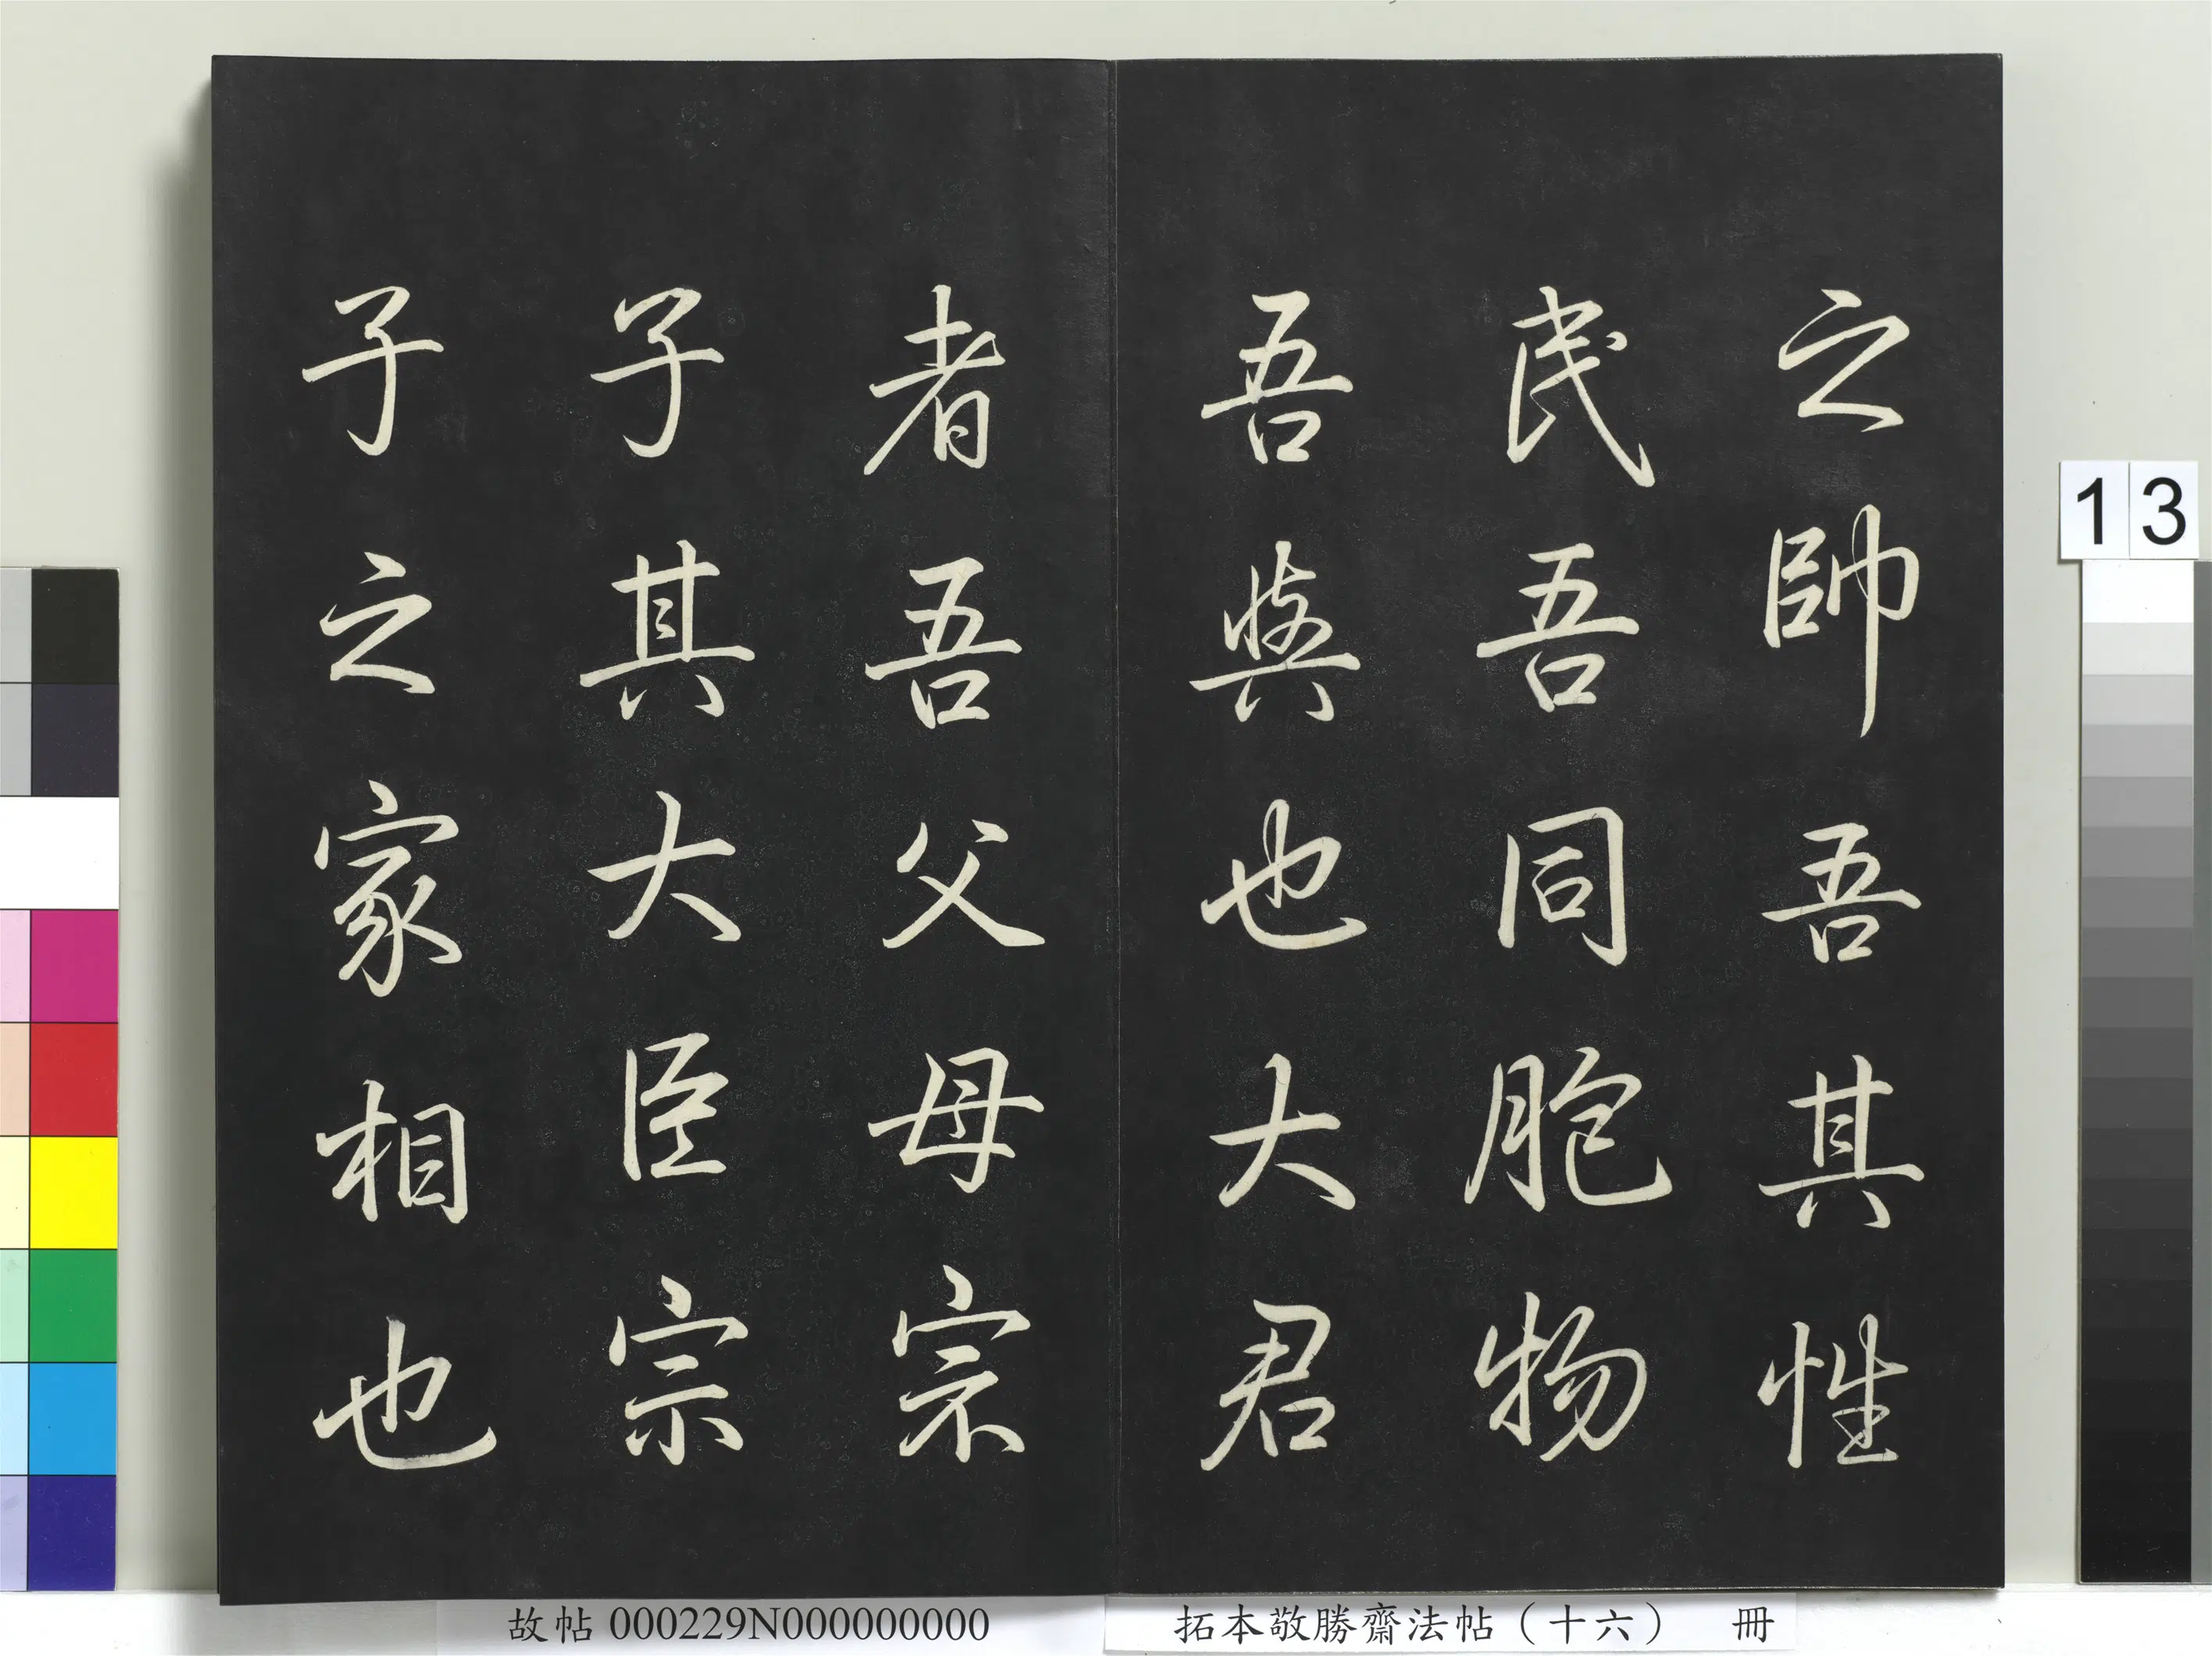 之帥吾其性
民吾同胞物
吾與也大君
者吾父母宗
子其大臣宗
子之家相也
13
故帖 000229N000000000
拓本敬勝齋法帖（十六） 冊